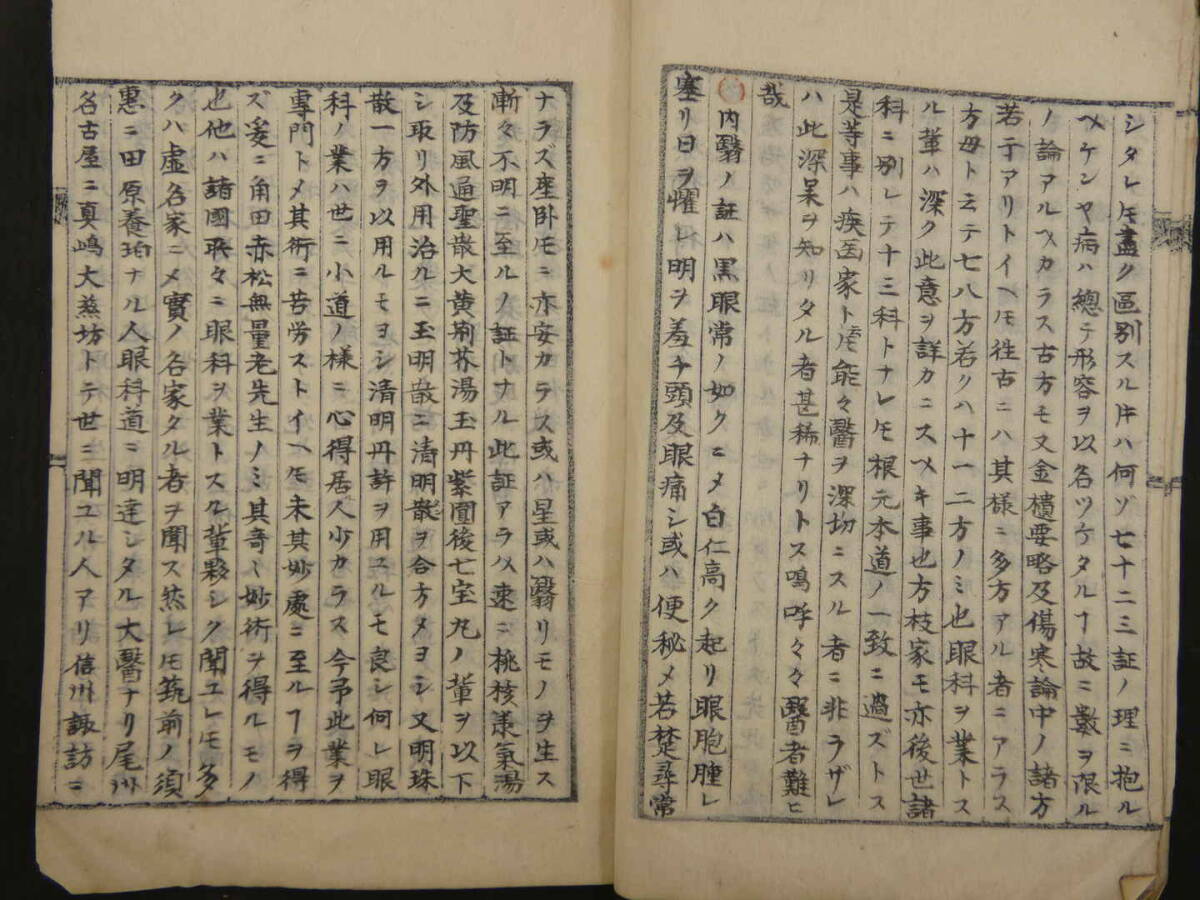 シタレ𪜈盡ク區別スル片ハ何ゾ七十二三証ノ理ニ抱ル
ヘケンヤ病ハ總テ形容ヲ以名ツケタルヿ故ニ數ヲ限ル
ノ論アルヘカラス古方モ又金樻要略及傷寒論中ノ諸方
若干アリトイヘ𪜈往古ニハ其様ニ多方アル者ニアラス
方毋ト云テ七八方若クハ十一二方ノミ也眼科ヲ業トス
ル輩ハ深ク此意ヲ詳カニスヘキ事也方枝家モ亦後世諸
科ニ別レテ十三科トナレ𪜈根元本道ノ一致ニ過ズトス
是等事ハ疾医家ト𪜈能々醫ヲ深切ニスル者ニ非ラザレ
ハ此深杲ヲ知リタル者甚稀ナリトス嗚呼々々醫者難ヒ
哉
〇内翳ノ証ハ黒眼常ノ如クニメ白仁高ク起リ眼胞腫レ
塞リ日ヲ懼レ明ヲ羞チ頭及眼痛シ或ハ便秘メ若楚尋常
ナラズ座卧𪜈ニ亦安カラス或ハ星或ハ翳リモノヲ生ス
漸々不明ニ至ルノ証トナル此証アラハ速ニ桃核㒕氣湯
及防風通聖散大黄荊芥湯玉丹紫圓後七宝丸ノ輩ヲ以下
シ取リ外用治ルニ玉明散ニ清明散ヲ合方メヨシ又明珠
散一方ヲ以用ルモヨシ清明丹許ヲ用ユルモ良シ何レ眼
科ノ業ハ世ニ小道ノ様ニ心得居人少カラス今予此業ヲ
專門トメ其術ニ苦労ストイヘ𪜈未其妙處ニ至ルヿヲ得
ズ爰ニ角田赤松無量老先生ノミ其奇々妙術ヲ得ルモノ
也他ハ諸國㪽々ニ眼科ヲ業トスル輩夥シク聞ユレ𪜈多
クハ虚名家ニメ實ノ名家タル者ヲ聞ス然レ𪜈筑前ノ須
惠ニ田原養珀ナル人眼科道ニ明達シタル大醫ナリ尾州
名古屋ニ真嶋大慈坊トテ世ニ聞ユル人アリ信州諏訪ニ